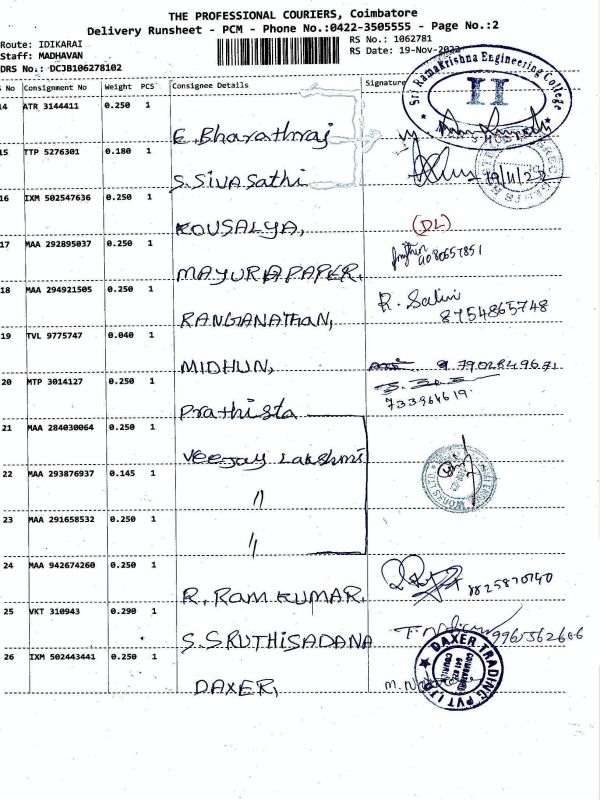 THE PROFESSIONAL COURIERS, Coimbatore
Delivery Runsheet - PCM - Phone No.:0422-3505555 - Page No.:2
Route: IDIKARAI
RS No.: 1062781
Staff: MADHAVAN
RS Date: 19-Nov-2022
DRS No.: DCJB106278102
No Consignment No Weight PCS Consignee Details Signature
14 ATR 3144411 0.250 1 E. Bharathraj
15 TTP 5276301 0.180 1 S. Sivasathi 19/11/22
16 IXM 502547636 0.250 1 KOUSALYA, (DL)
17 MAA 292895037 0.250 1 MAYURA PAPER,
18 MAA 294921505 0.250 1 RANGANATHAN, R. Salini 8754865748
19 TVL 9775747 0.040 1 MIDHUN,
20 MTP 3014127 0.250 1 Prathista 733964619
21 MAA 284030064 0.250 1 Veejay Lakshmi
22 MAA 293876937 0.145 1 "
23 MAA 291658532 0.250 1 "
24 MAA 942674260 0.250 1 R. RAM KUMAR.
25 VKT 310943 0.290 1 S. SRUTHISADANA
26 IXM 502443441 0.250 1 DAXER,
Sri Ramakrishna Engineering College
II
DAXER TRADING PVT LTD